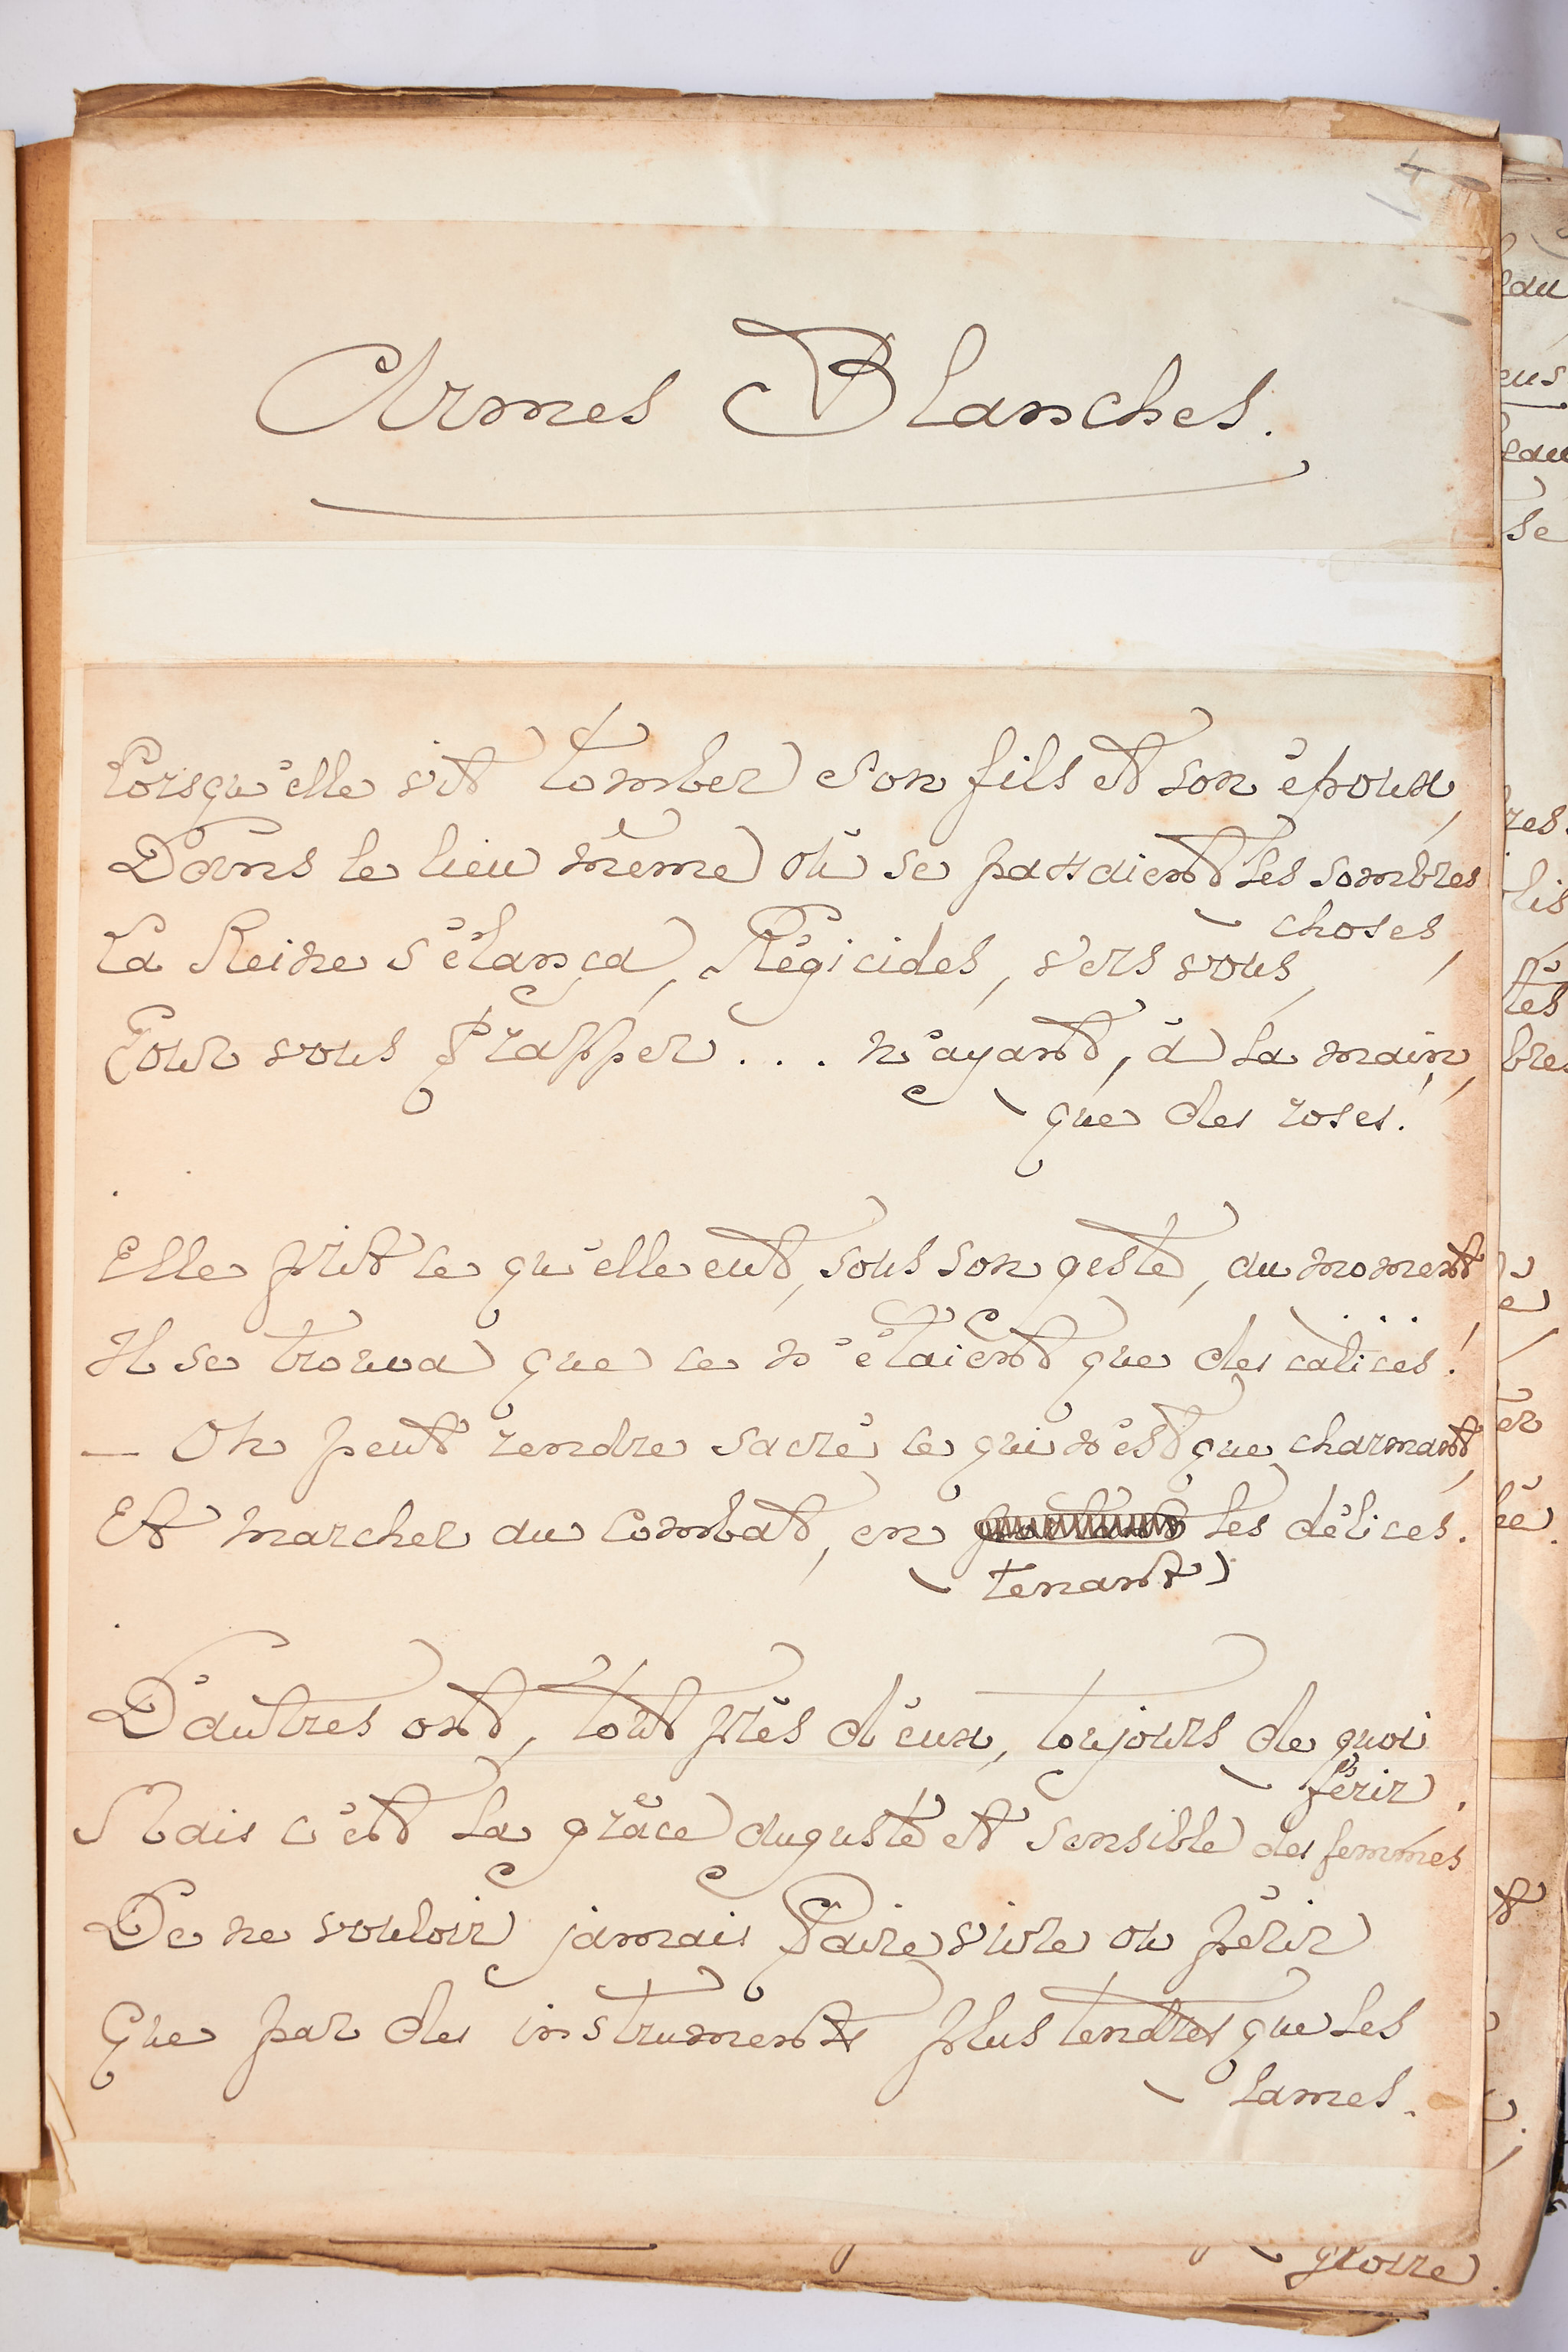 4
Armes Blanches.
Lorsqu'elle vit tomber son fils et son époux,
Dans le lieu même où se passaient les sombres
choses,
La Reine s'élança, Régicides, vers vous,
Pour vous frapper... n'ayant, à la main,
que des roses.
Elle prit ce qu'elle eut, sous son geste, au moment...
Il se trouva que ce n'étaient que des calices!
— On peut rendre sacré ce qui n'est que charmant,
Et marcher au combat, en les délices.
tenant
D'autres ont, tout près d'eux, toujours de quoi
férir.
Mais c'est la grâce auguste et sensible des femmes
De ne vouloir jamais faire vivre ou périr
Que par des instruments plus tendres que les
lames.
gloire